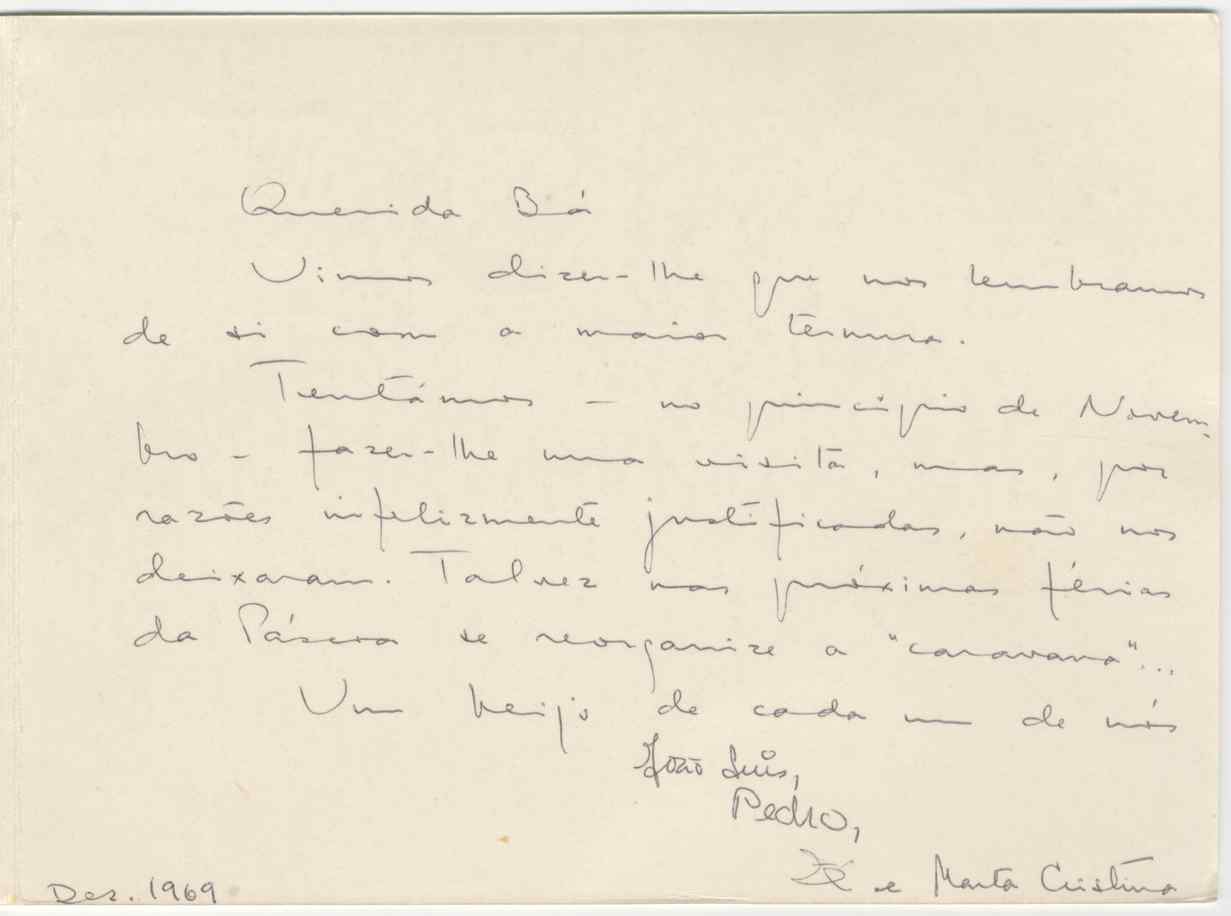 Querida Bá
Vimos dizer-lhe que nos lembramos
de si com a maior ternura.
Tentámos - no princípio de Novem-
bro - fazer-lhe uma visita, mas, por
razões infelizmente justificadas, não nos
deixaram. Talvez nas próximas férias
da Páscoa se reorganize a "caravana"...
Um beijo de cada um de nós
João Luís,
Pedro,
Zé e Marta Cristina
Dez. 1969